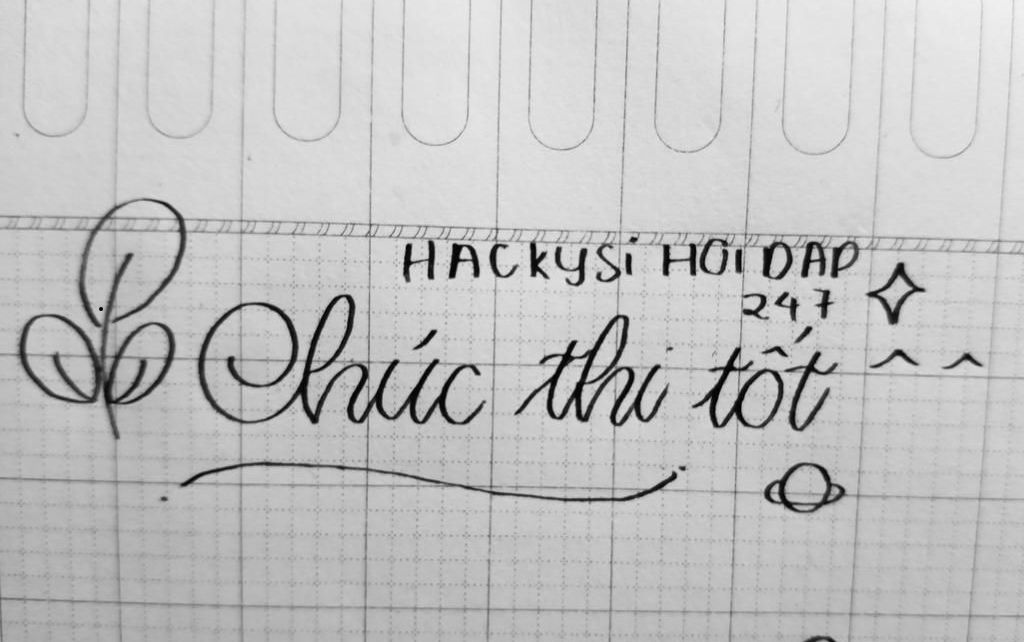 HACKYSi HOIDAP
247
Chúc thi tốt ^ ^